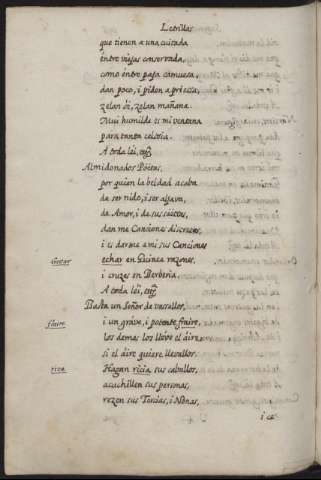 Letrillas
que tienen a una cuitada
entre viejas conservada,
como entre paja camuesa.
dan poco, i piden apriessa,
zelan oi, zelan mañana.
Mui humilde es mi ventana
para tanta celosia.
A toda lei, etc.
Almidonados Poetas,
por quien la beldad acaba
de ser nido, i ser aljava,
de Amor, i de sus saetas,
dan me Canciones discretas,
i es darme a mi sus Canciones
echar en Guinea razones,
i cruzes en Berberia.
A toda lei, etc.
Basta un Señor de vassallos,
i un grave, i potente fraire,
los demas los lleve el aire,
si el aire quiere llevallos.
Hagan riza sus cavallos,
acuchillen sus personas,
rezen sus Tercias, i Nonas,
fraire
riza